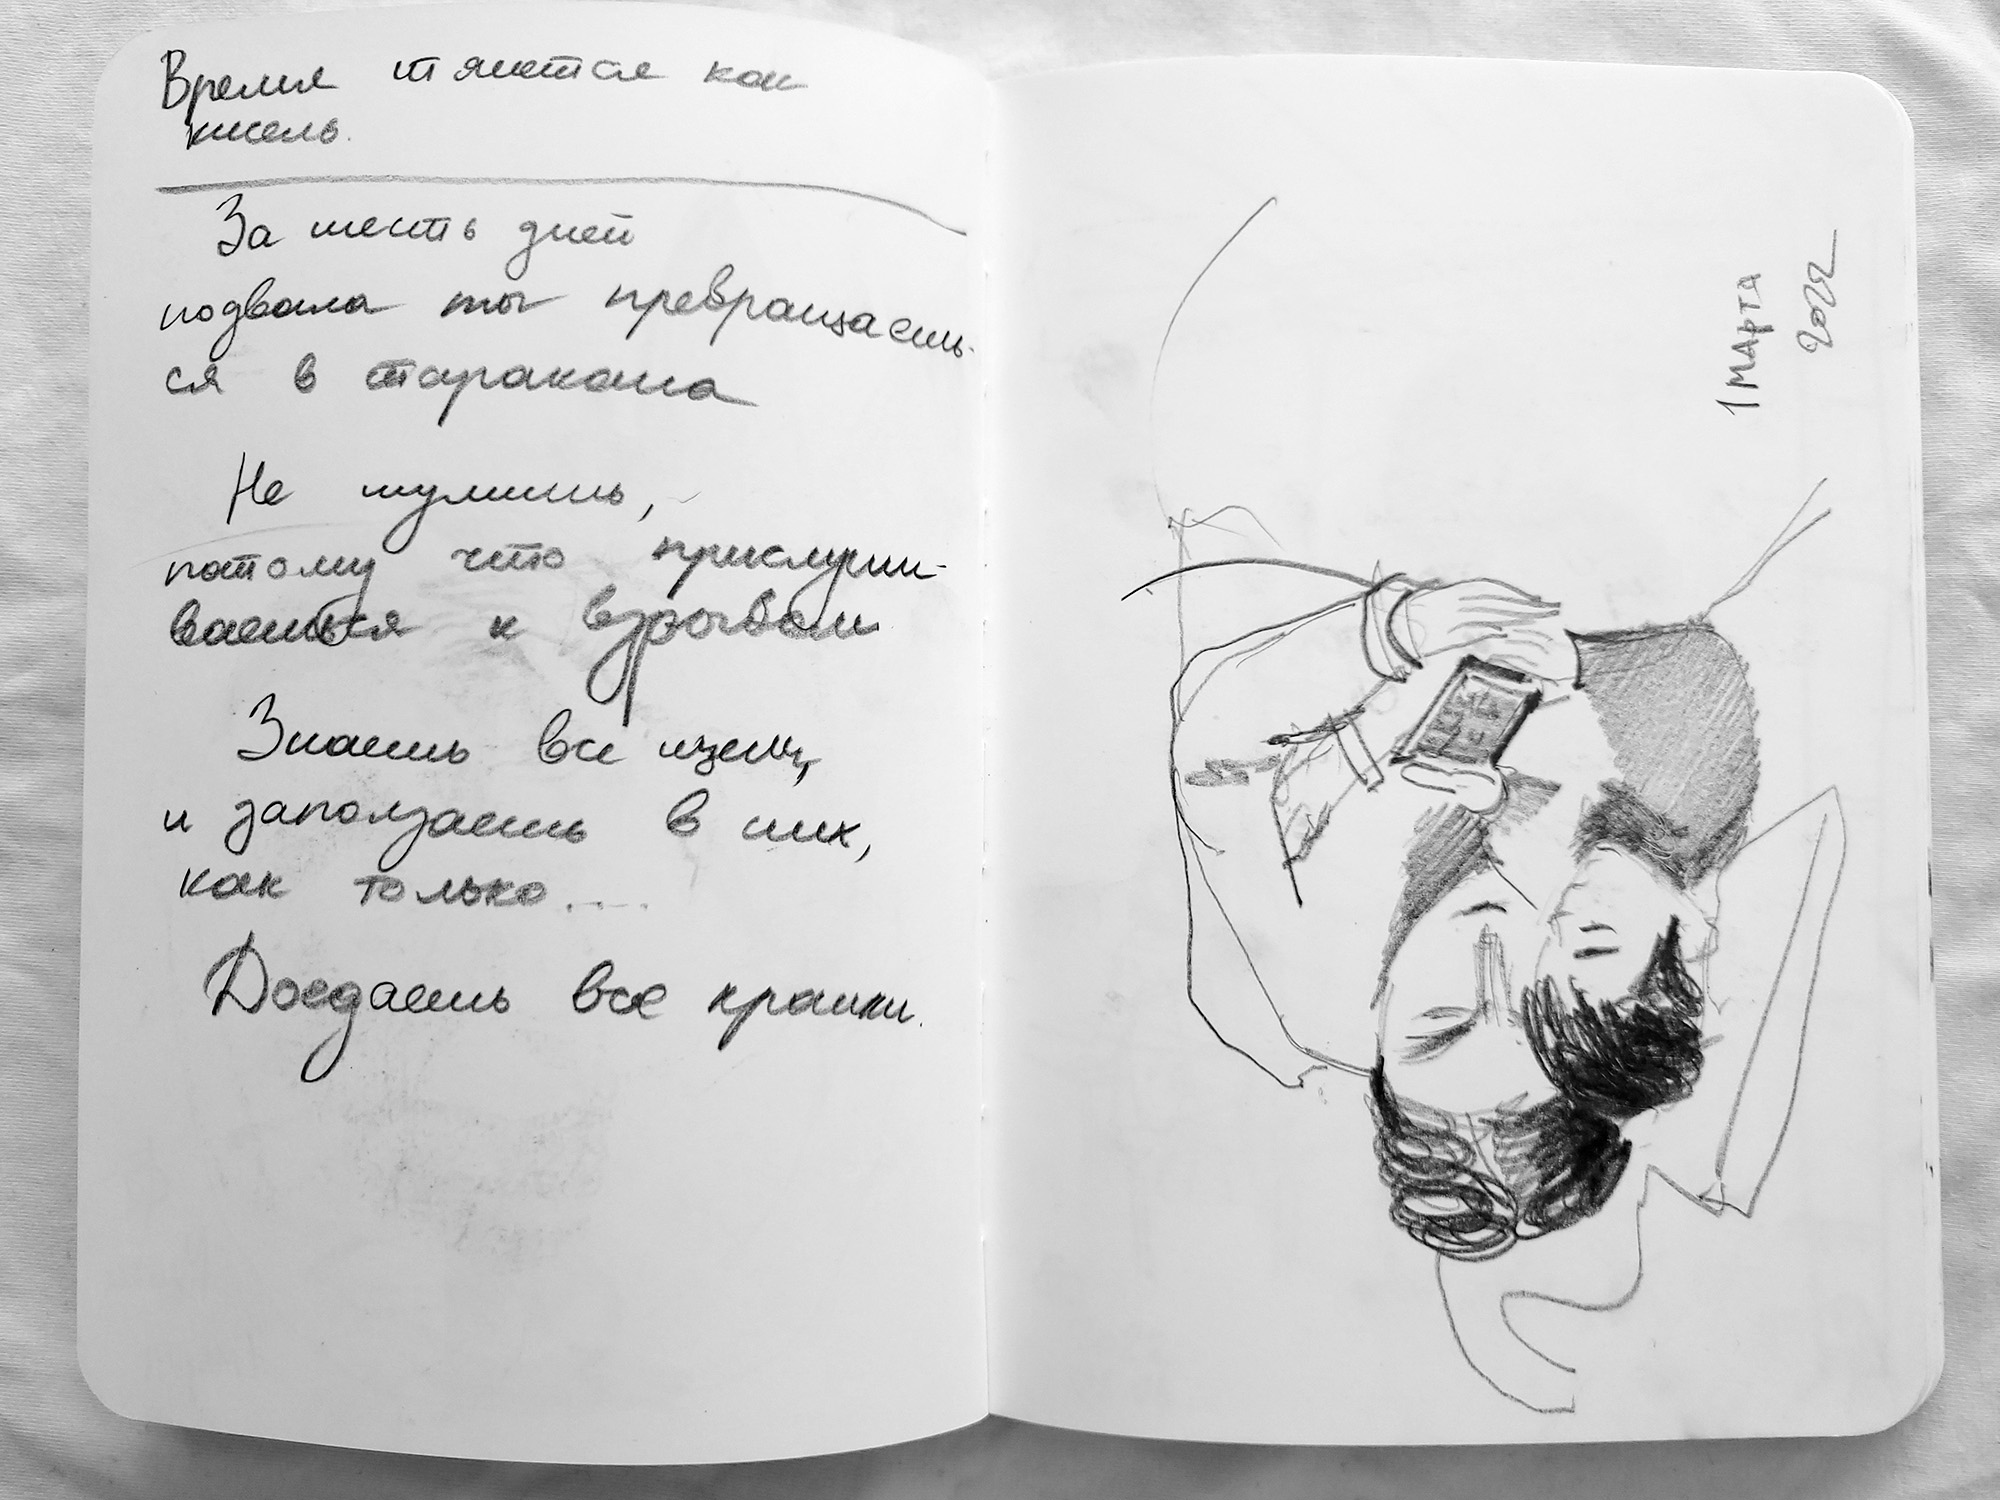 Время тянется как
кисель.
За шесть дней
подвала ты превращаешь-
ся в таракана
Не шумишь,
потому что прислуши-
ваешься к взрывам.
Знаешь все щели,
и заползаешь в них,
как только....
Доедаешь все крошки.
1 МАРТА
2022